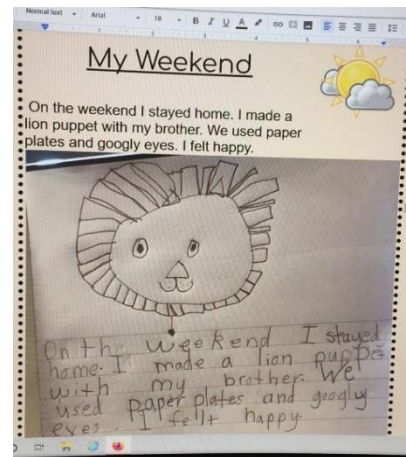 Normal text
Arial
18
B I U A
My Weekend
On the weekend I stayed home. I made a
lion puppet with my brother. We used paper
plates and googly eyes. I felt happy.
On the weekend I stayed
home. I made a lion
with my brother. We
used paper plates and googly
eyes. I felt happy.